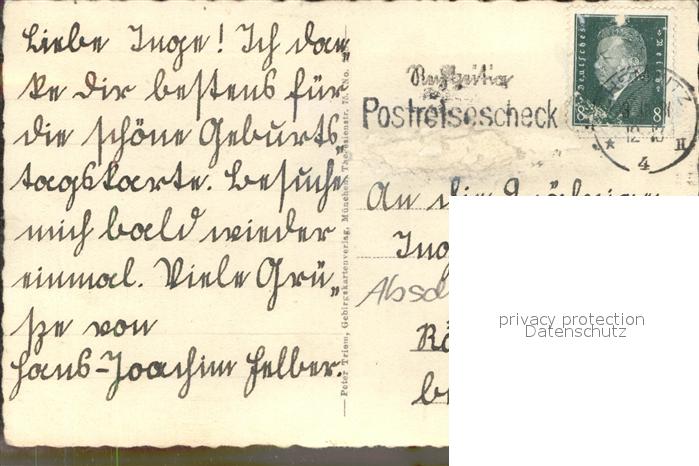 Liebe Inge! Ich dan„
ke dir bestens für
die schöne Geburts„
tagskarte. Besuche
mich bald wieder
einmal. Viele Grü„
ße von
Hans-Joachim Felber.
Peter Triem, Gebirgskartenverlag, München, Theresienstr. 75. No.
Deutsches Reich
8 8
Postreisescheck
12-13
* 4 II
An die
Absd
privacy protection
Datenschutz